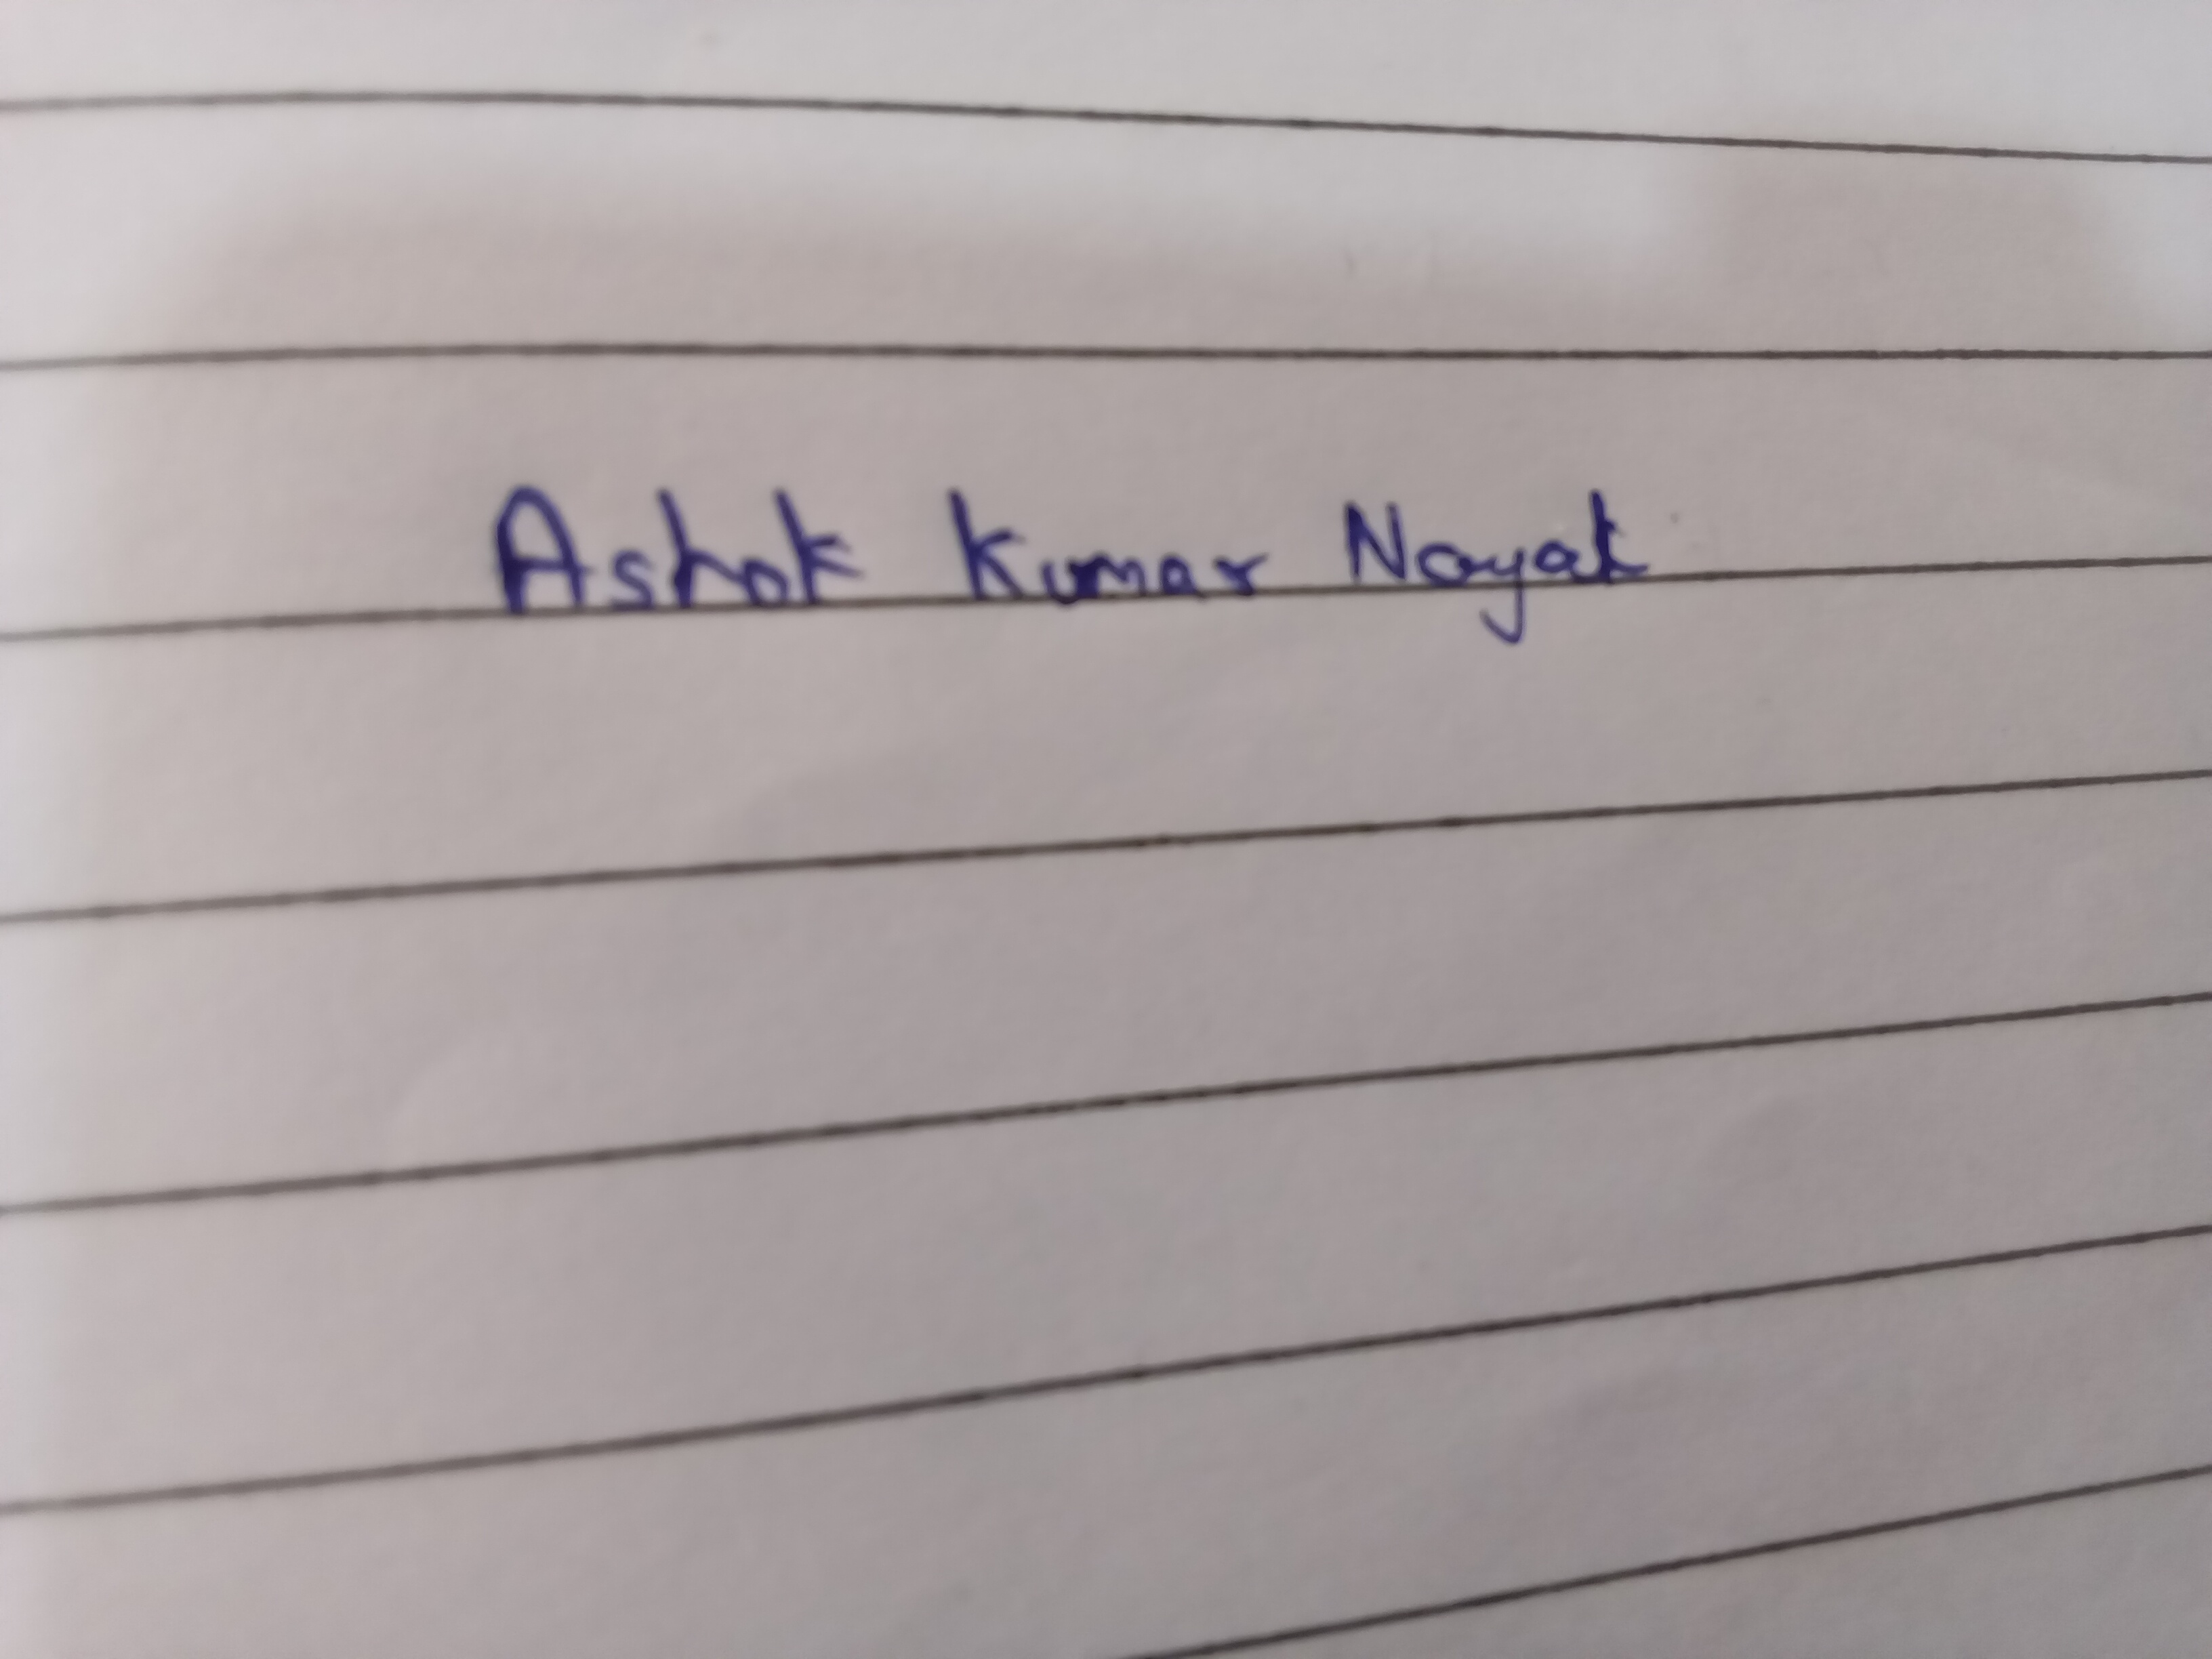 Ashok Kumar Nayak